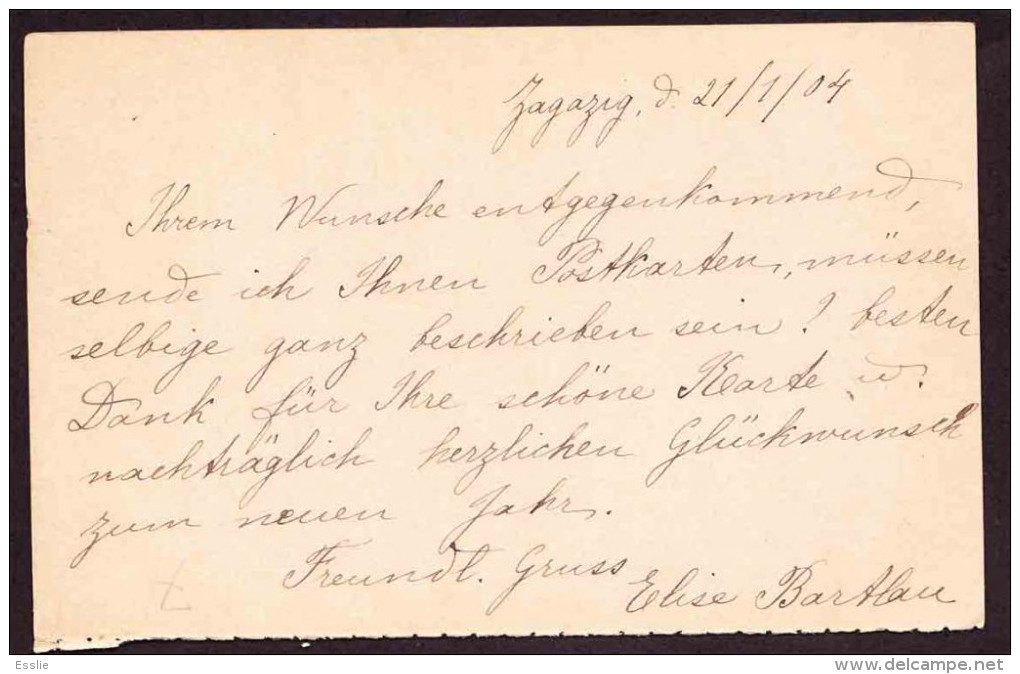 Zagazig, d. 21/1/04
Ihrem Wunsche entgegenkommend,
sende ich Ihnen Postkarten, müssen
selbige ganz beschrieben sein? besten
Dank für Ihre schöne Karte u.
nachträglich herzlichen Glückwunsch
zum neuen Jahr.
Freundl. Gruss
Elise Bartlau
Esslie
www.delcampe.net